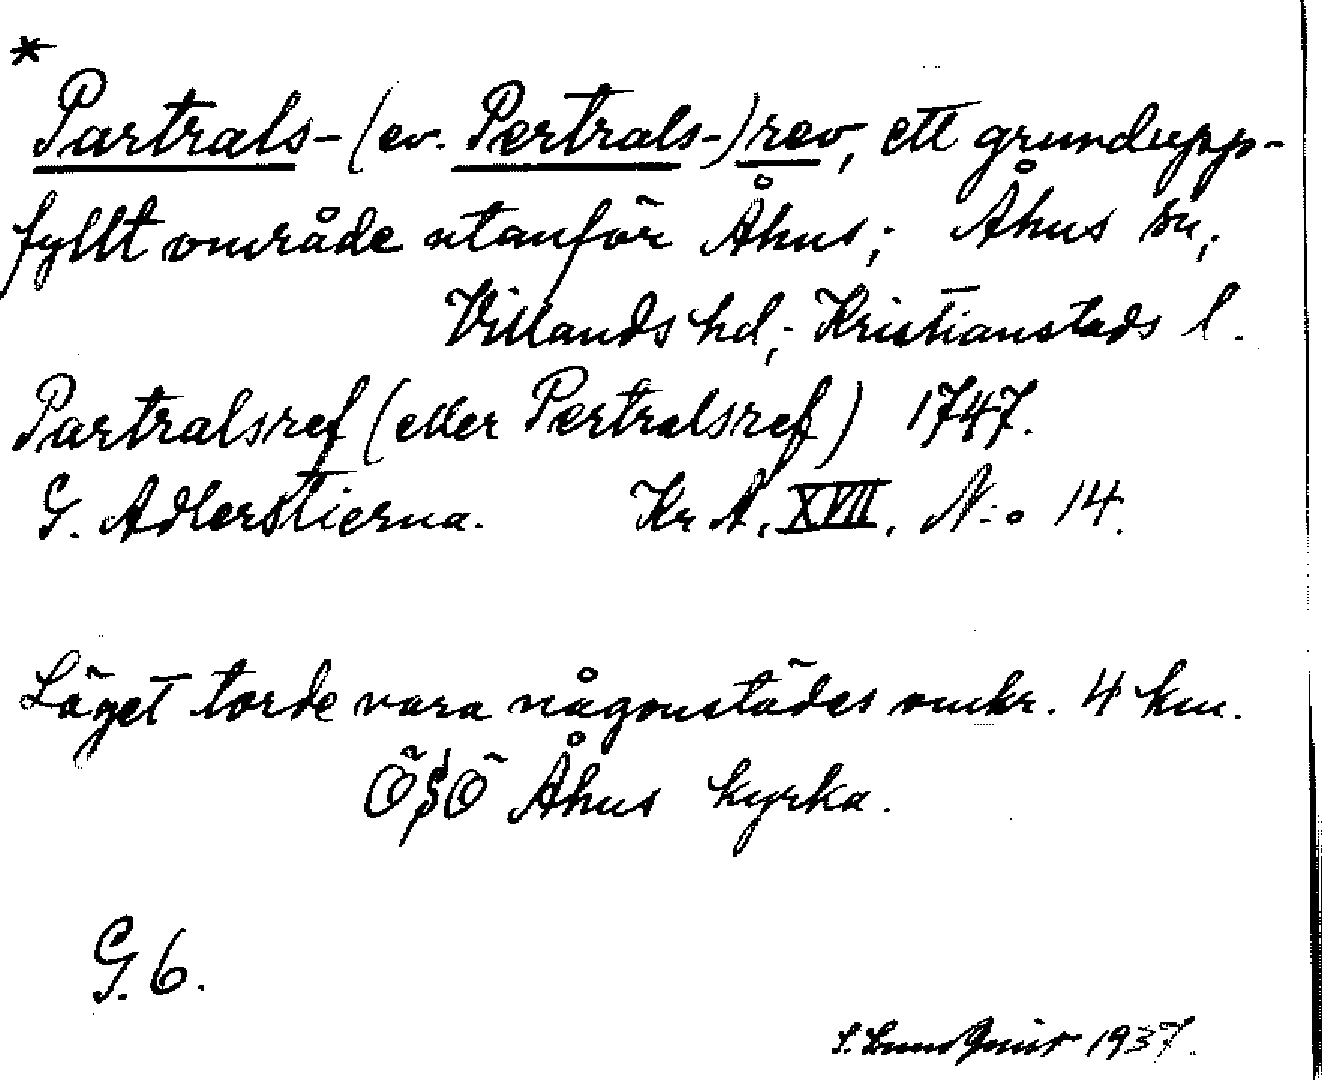 *
Partrals-(ev. Pertrals-)rev, ett grundupp-
fyllt område utanför Åhus; Åhus sn,
Villands hd, Kristianstads l.
Partralsref (eller Pertralsref) 1747.
G. Adlerstierna. Kr A. XVII. N:o 14.
Läget torde vara någonstädes omkr. 4 km.
ÖSÖ Åhus kyrka.
G. 6.
S. Lundquist 1937.